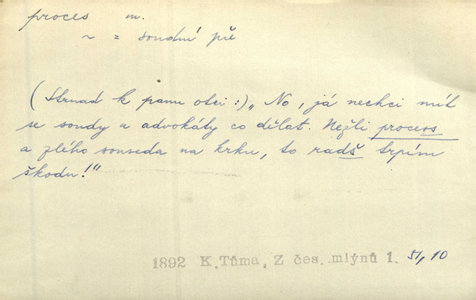 proces m.
~ = soudní pře
(Strnad k panu otci:) „No, já nechci míti
se soudy a advokáty co dělat. Nežli process
a zlého souseda na krku, to radš trpím
škodu!"
1892 K.Tůma, Z čes. mlýnů 1. 51, 10